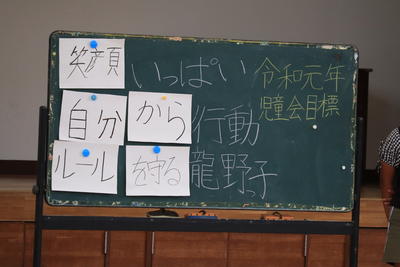 笑顔いっぱい
自分から行動
ルールを守る龍野子
令和元年
児童会目標